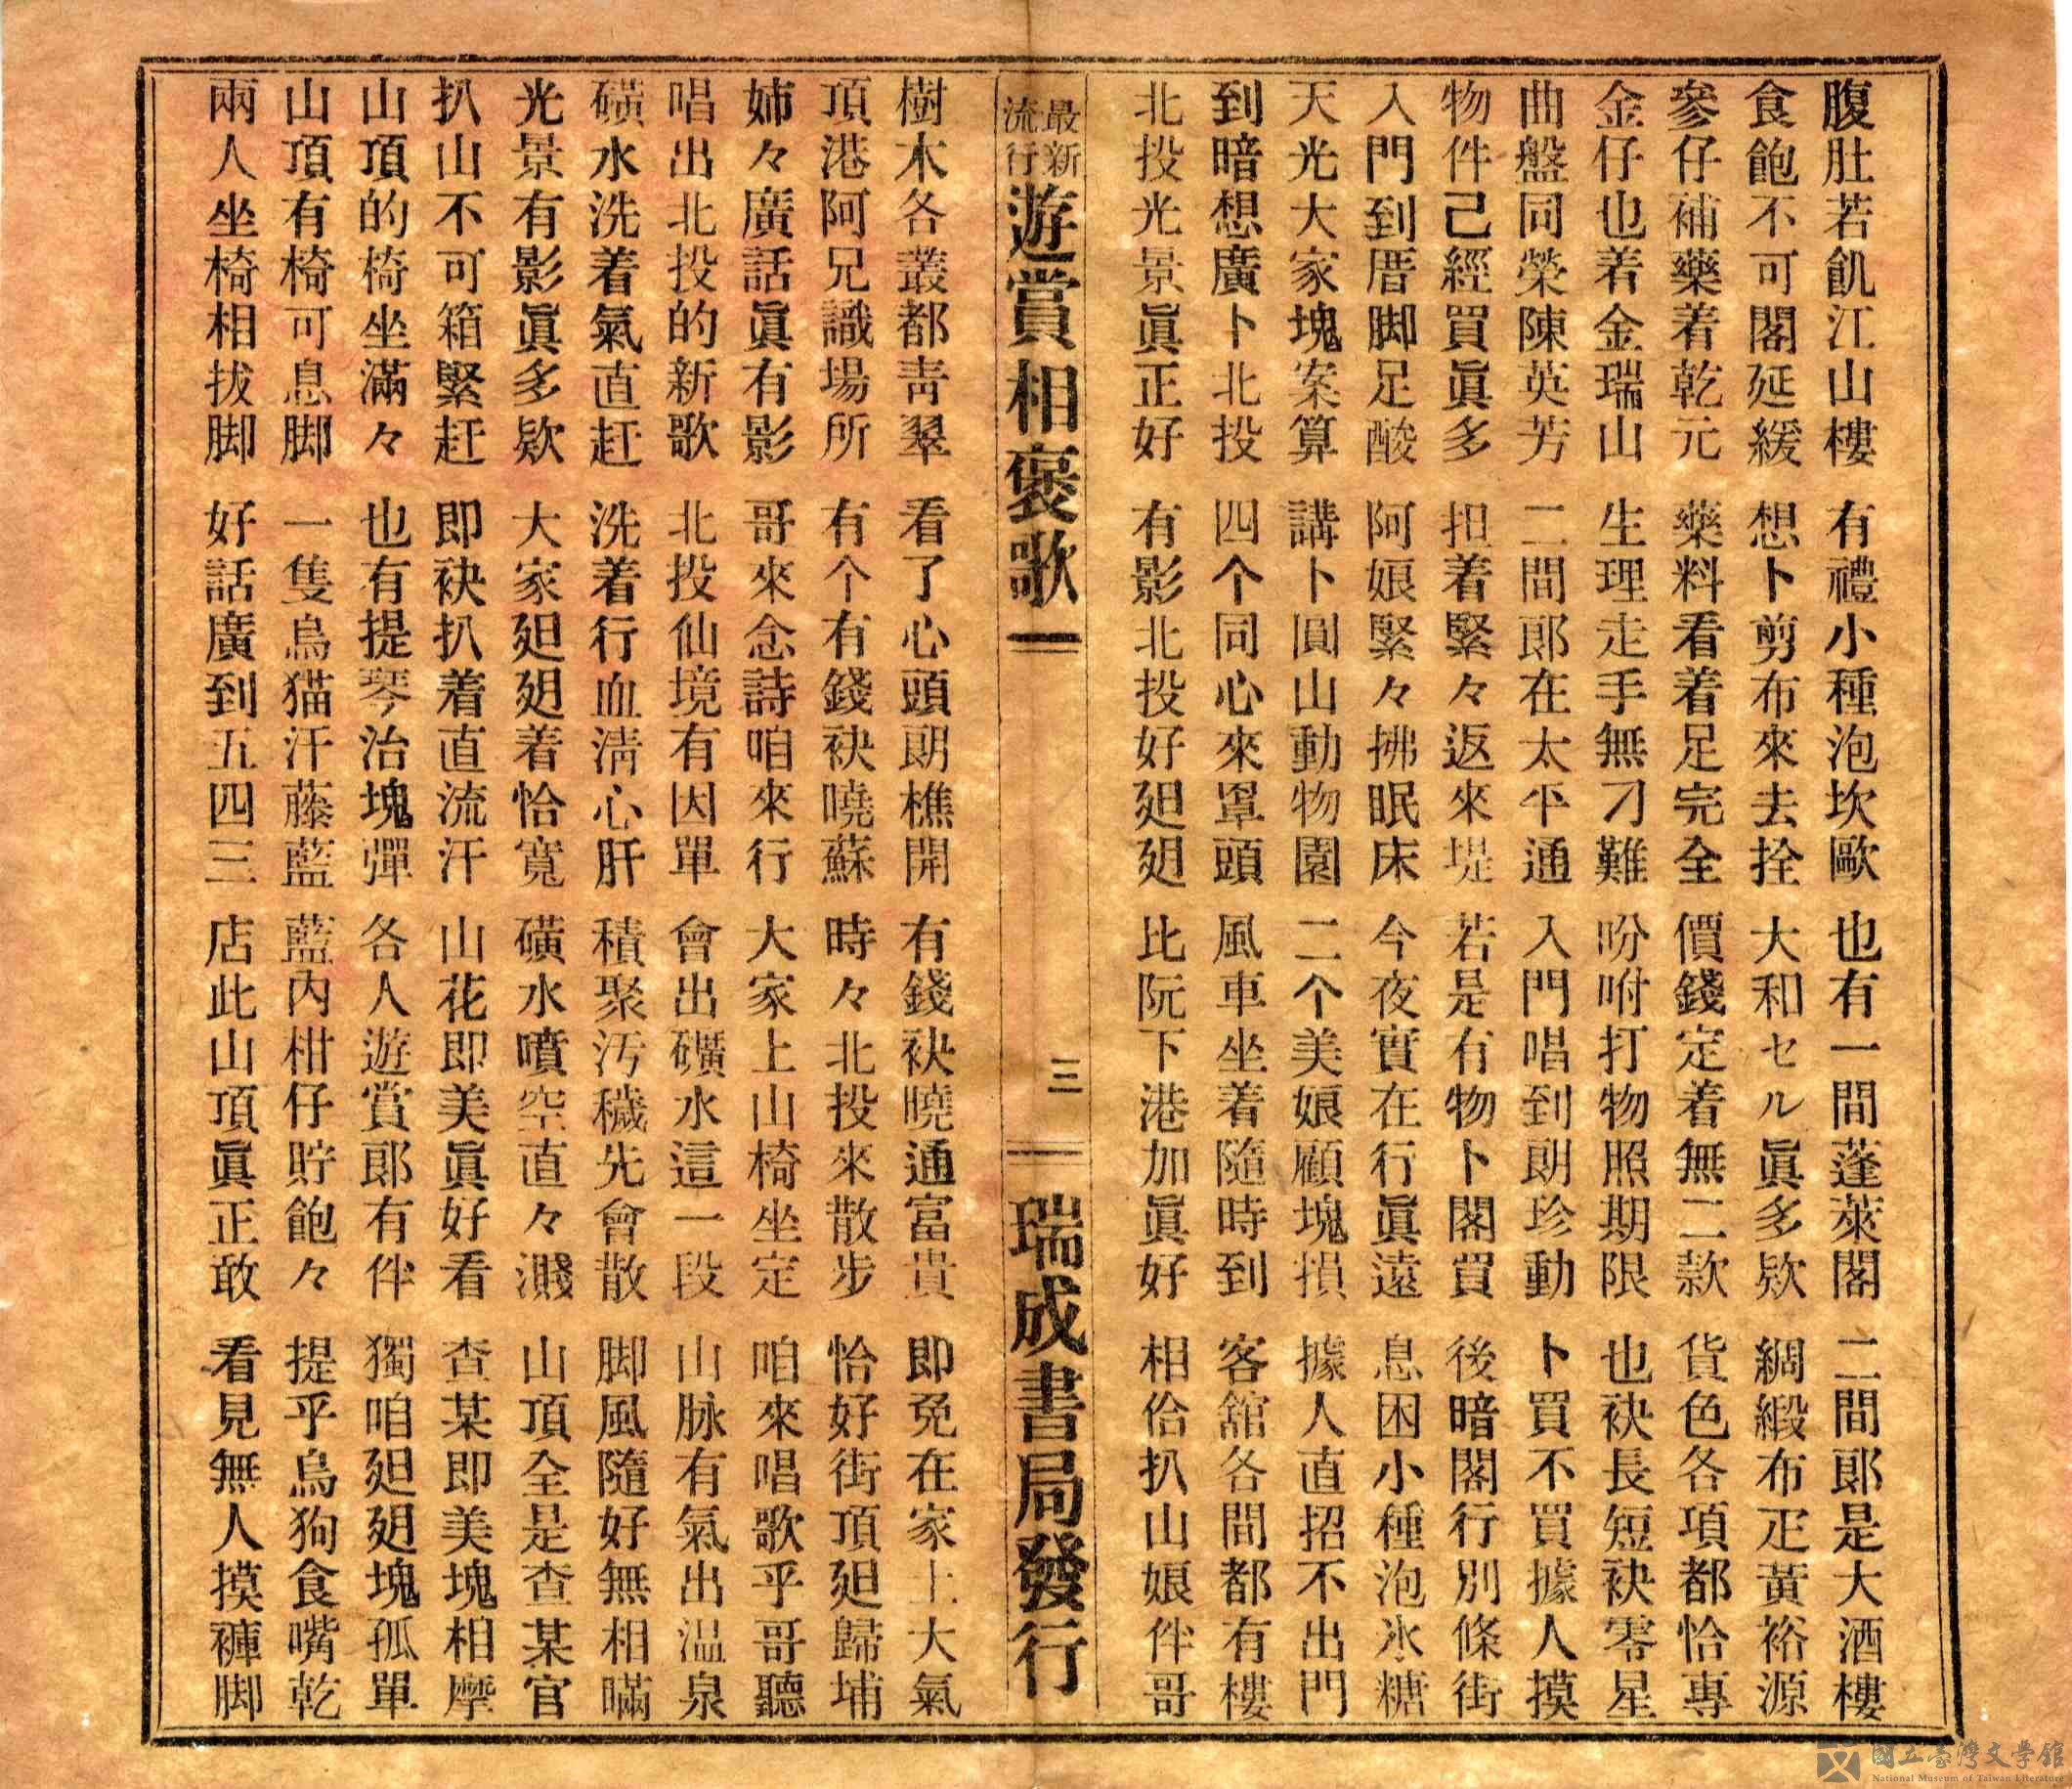 腹肚若飢江山樓 有禮小種泡坎歐 也有一間蓬萊閣 二間郎是大酒樓
食飽不可閣延緩 想卜剪布來去拴 大和セル眞多欵 綢緞布疋黃裕源
參仔補藥着乾元 藥料看着足完全 價錢定着無二款 貨色各項都恰專
金仔也着金瑞山 生理走手無刁難 吩咐打物照期限 也袂長短袂零星
曲盤同榮陳英芳 二間郎在太平通 入門唱到朗珍動 卜買不買據人摸
物件己經買眞多 扭着緊々返來堤 若是有物卜閣買 後暗閣行別條街
入門到厝脚足酸 阿娘緊々拂眠床 今夜實在行眞遠 息困小種泡氷糖
天光大家塊案算 講卜圓山動物園 二个美娘顧塊損 據人直招不出門
到暗想廣卜北投 四个同心來罩頭 風車坐着隨時到 客舘各間都有樓
北投光景眞正好 有影北投好廻𨑨 比阮下港加眞好 相佮扒山娘伴哥
最新流行 遊賞相褒歌 三 瑞成書局發行
樹木各叢都靑翠 看了心頭朗樵開 有錢袂曉通富貴 即免在家上大氣
頂港阿兄識場所 有个有錢袂曉蘇 時々北投來散步 恰好街頂廻歸埔
姉々廣話眞有影 哥來念詩咱來行 大家上山椅坐定 咱來唱歌乎哥聽
唱出北投的新歌 北投仙境有因單 會出礦水這一段 山脉有氣出温泉
磺水洗着氣直赶 洗着行血淸心肝 積聚汚穢先會散 脚風隨好無相瞞
光景有影眞多欵 大家廻𨑨着恰寬 磺水噴空直々濺 山頂全是查某官
扒山不可箱緊赶 即袂扒着直流汗 山花即美眞好看 查某即美塊相摩
山頂的椅坐滿々 也有提琴治塊彈 各人遊賞郎有伴 獨咱廻𨑨塊孤單
山頂有椅可息脚 一隻烏猫汗藤藍 藍內柑仔貯飽々 提乎烏狗食嘴乾
兩人坐椅相拔脚 好話廣到五四三 店此山頂眞正敢 看見無人摸褲脚
國立臺灣文學館
National Museum of Taiwan Literature